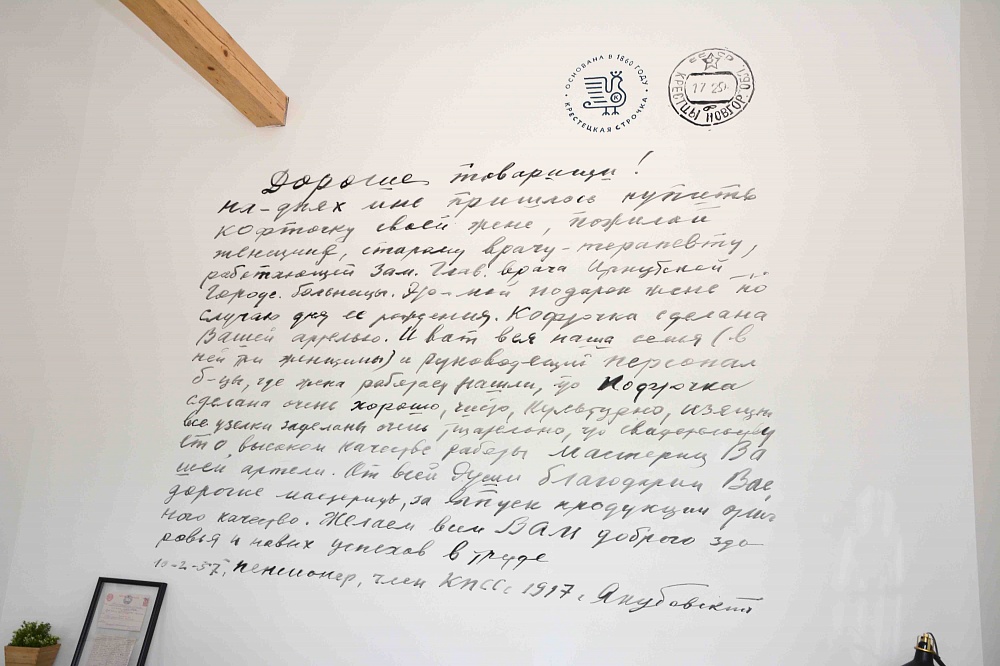 ОСНОВАНА В 1860 ГОДУ
КРЕСТЕЦКАЯ СТРОЧКА
СССР
КРЕСТЦЫ НОВГОР. ОБЛ
Дорогие товарищи!
на-днях мне пришлось купить
кофточку своей жене, пожилой
женщине, старому врачу-терапевту,
работающей Зам. Глав. врача Иркутской
Городс. больницы. Это-мой подарок жене по
случаю дня ее рождения. Кофточка сделана
Вашей артелью. И вот вся наша семья (в
ней три женщины) и руководящий персонал
б-цы, где жена работает нашли, что кофточка
сделана очень хорошо, чисто, культурно, изящно
все узелки заделаны очень тщательно, что свидетельству
ет о высоком качестве работы мастериц Ва
шей артели. От всей души благодарим Вас
дорогие мастерицы, за выпуск продукции отлич
ного качества. Желаем всем ВАМ доброго здо
ровья и новых успехов в труде
10-2-57г, пенсионер, член КПСС с 1917 г. Якубовский